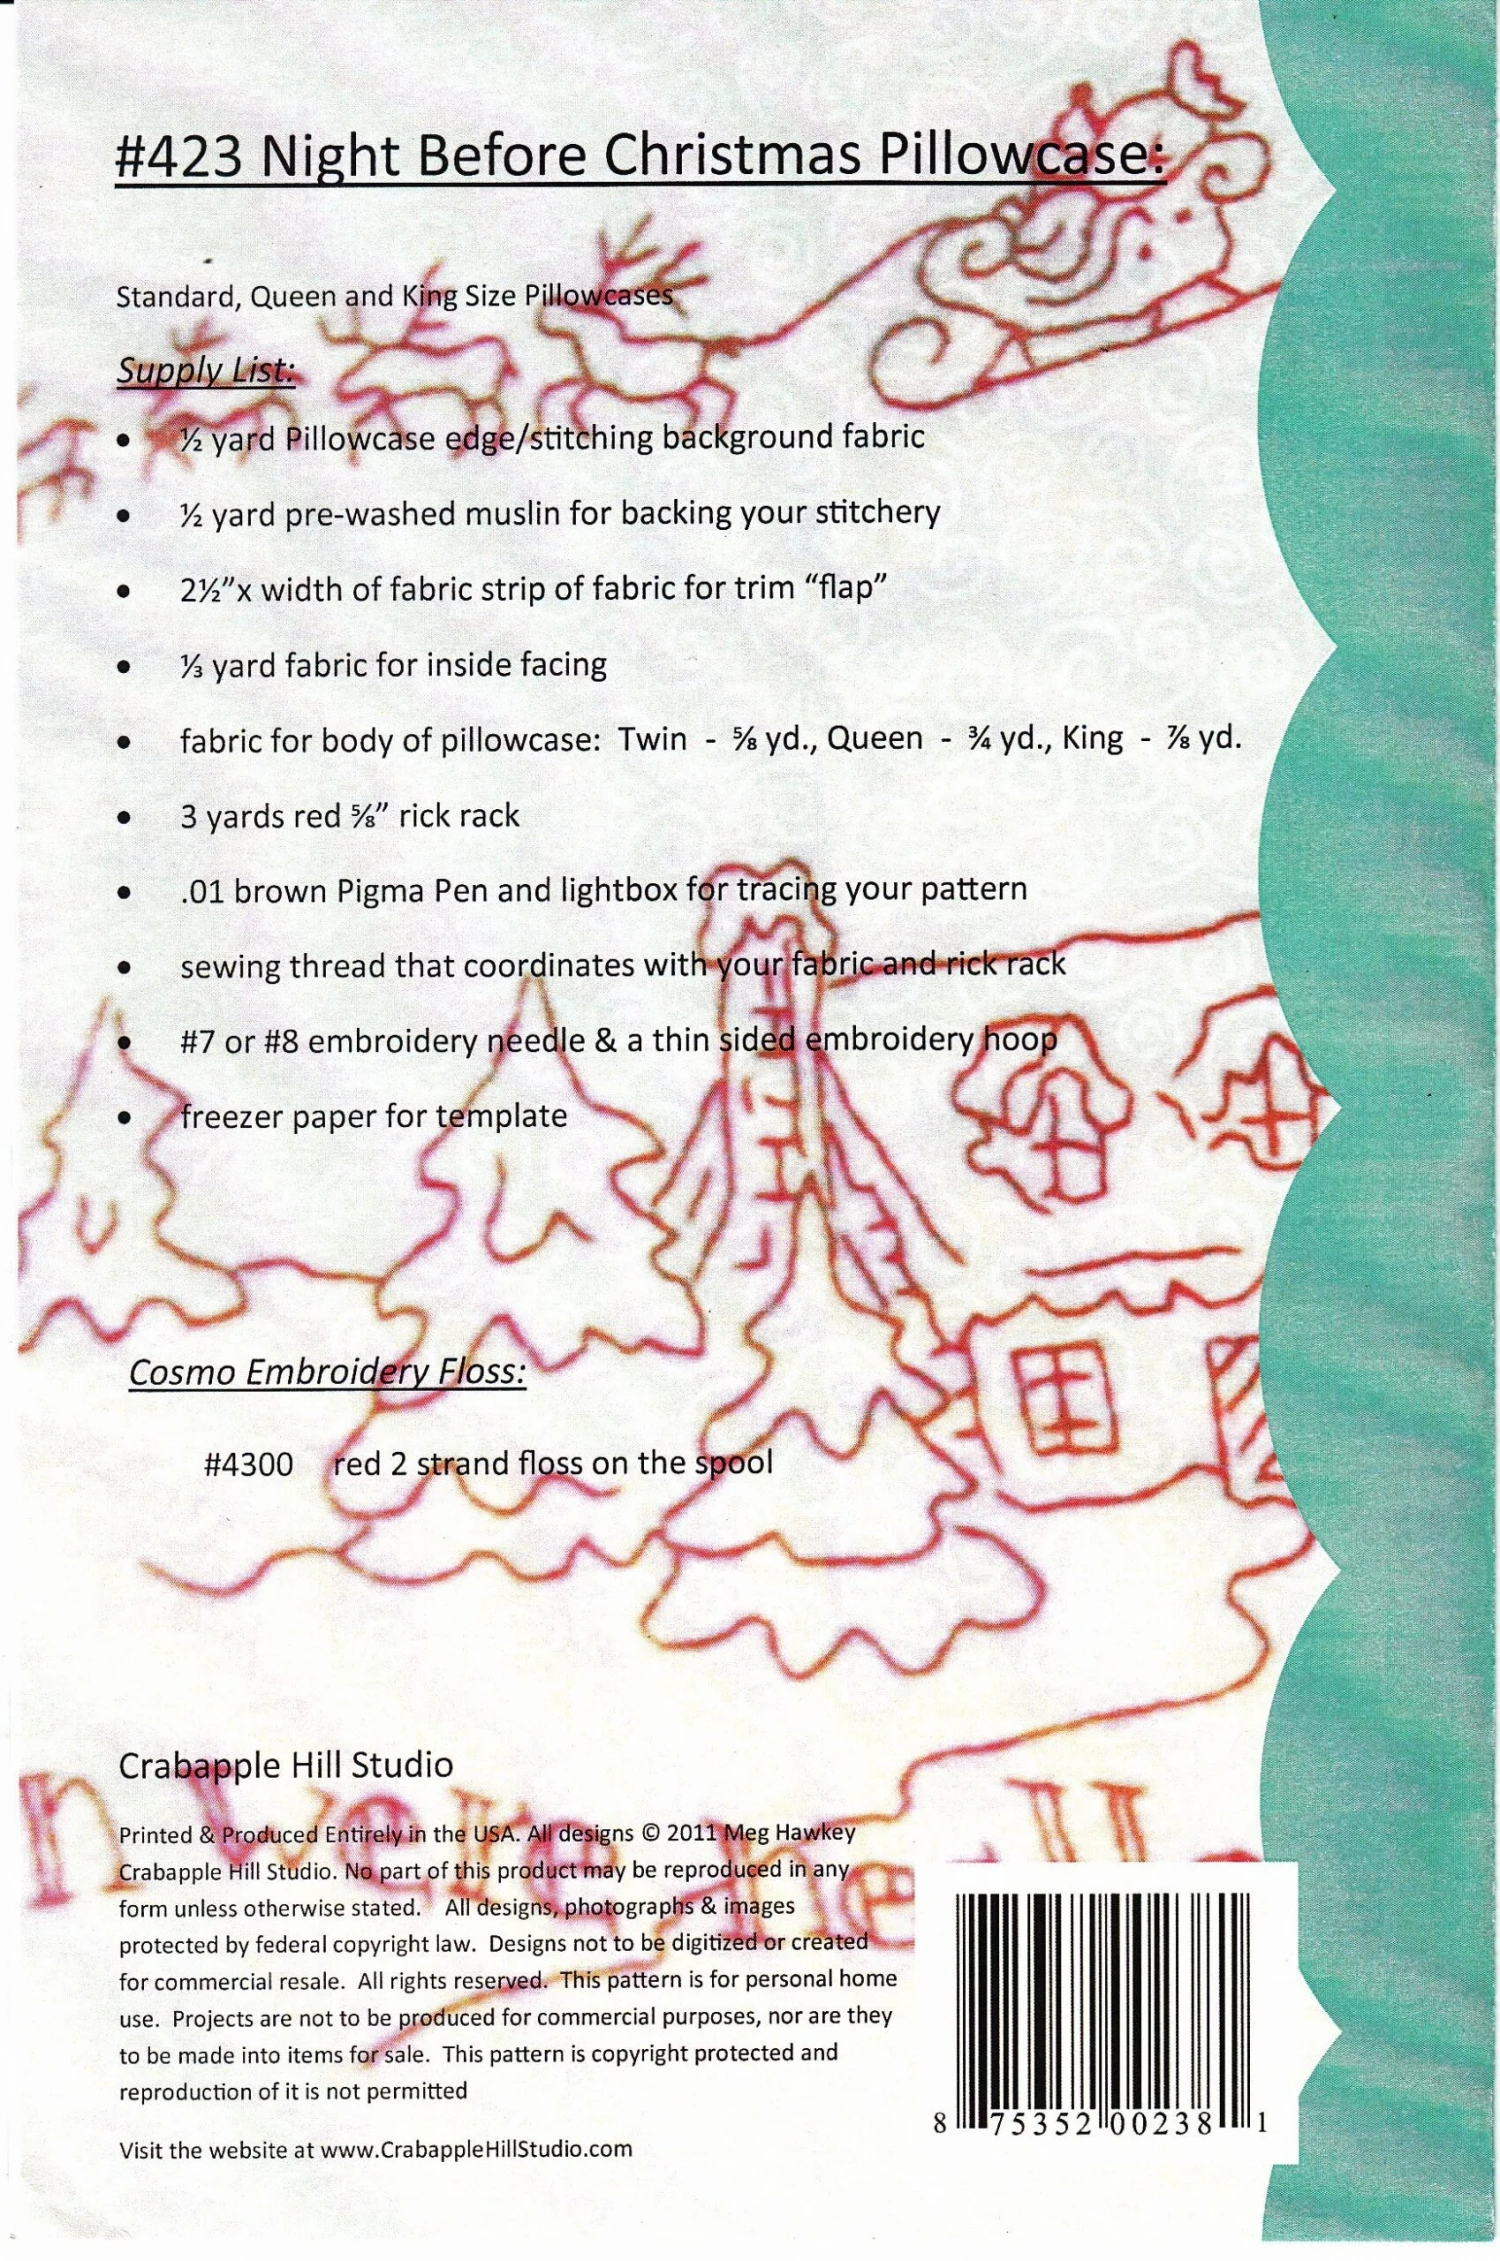 #423 Night Before Christmas Pillowcase:
Standard, Queen and King Size Pillowcases
Supply List:
• ½ yard Pillowcase edge/stitching background fabric
• ½ yard pre-washed muslin for backing your stitchery
• 2½”x width of fabric strip of fabric for trim “flap”
• ⅓ yard fabric for inside facing
• fabric for body of pillowcase: Twin - ⅝ yd., Queen - ¾ yd., King - ⅞ yd.
• 3 yards red ⅝” rick rack
• .01 brown Pigma Pen and lightbox for tracing your pattern
• sewing thread that coordinates with your fabric and rick rack
• #7 or #8 embroidery needle & a thin sided embroidery hoop
• freezer paper for template
Cosmo Embroidery Floss:
#4300 red 2 strand floss on the spool
Crabapple Hill Studio
n were ne
Printed & Produced Entirely in the USA. All designs © 2011 Meg Hawkey
Crabapple Hill Studio. No part of this product may be reproduced in any
form unless otherwise stated. All designs, photographs & images
protected by federal copyright law. Designs not to be digitized or created
for commercial resale. All rights reserved. This pattern is for personal home
use. Projects are not to be produced for commercial purposes, nor are they
to be made into items for sale. This pattern is copyright protected and
reproduction of it is not permitted
Visit the website at www.CrabappleHillStudio.com
8 75352 00238 1